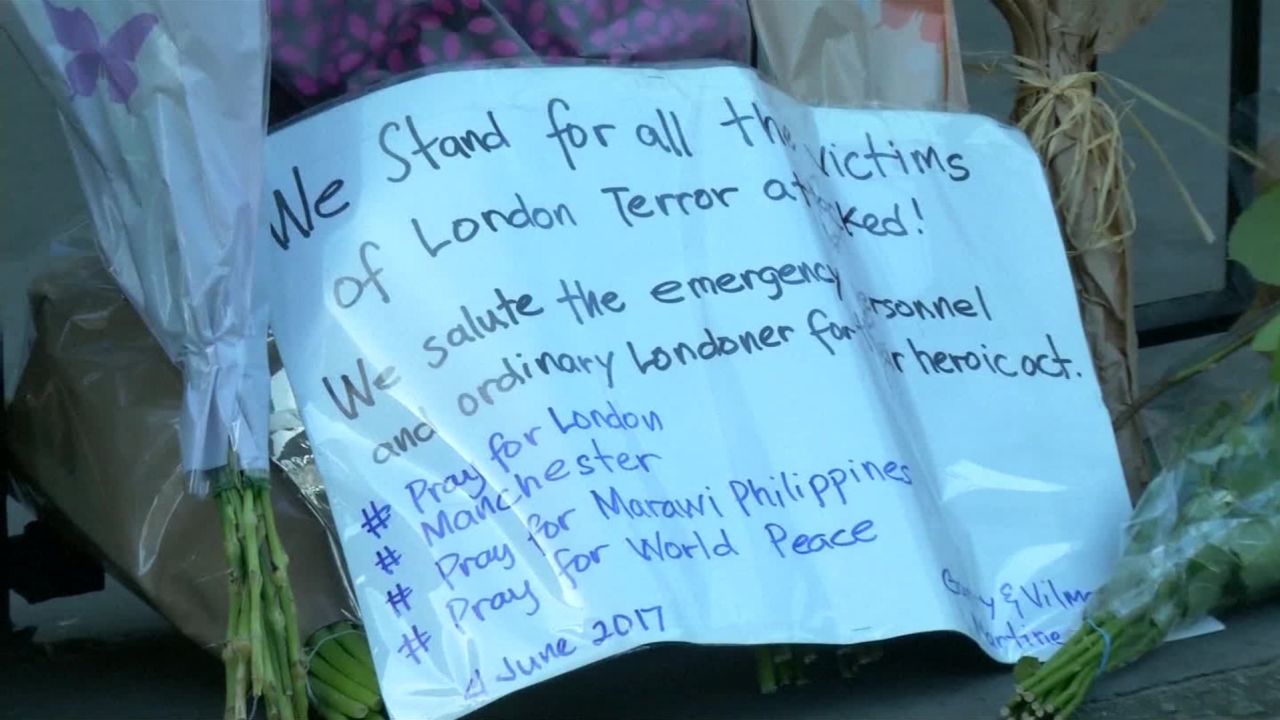 We Stand for all the victims
of London Terror attacked!
We salute the emergency personnel
and ordinary Londoner for their heroic act.
# Pray for London
# Manchester
# Pray for Marawi Philippines
# Pray for World Peace
4 June 2017
& Vilma